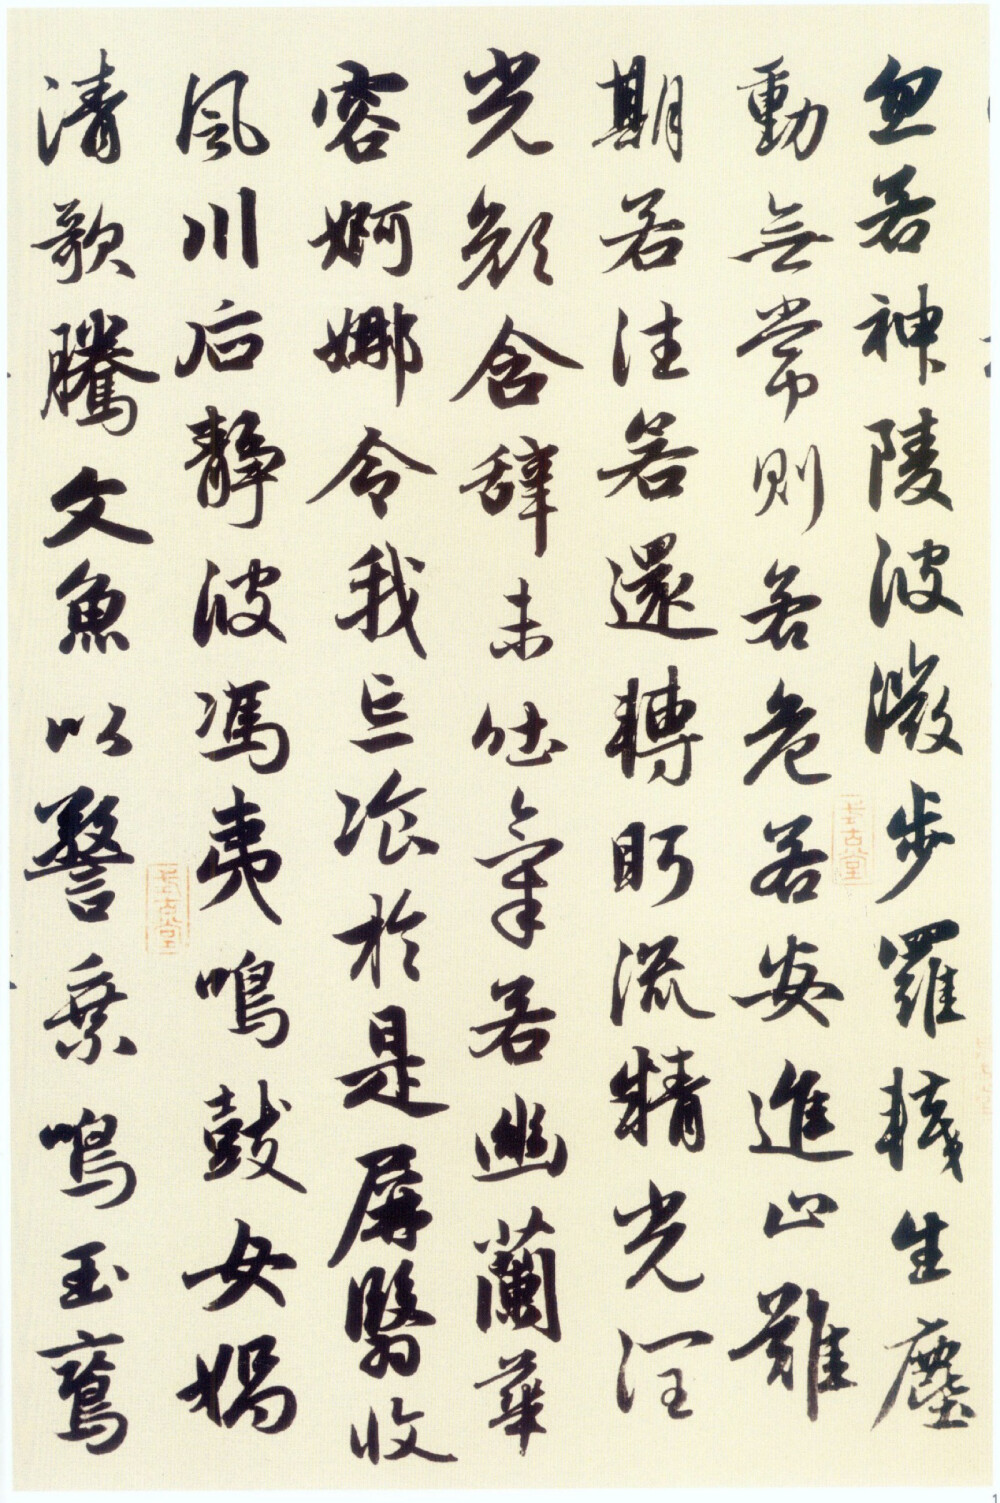 忽若神陵波微步羅襪生塵
動無常則若危若安進止難
期若往若還轉眄流精光潤
光顏含辞未吐氣若幽蘭華
容婀娜令我忘飡於是屏翳收
風川后靜波馮夷鳴鼓女媧
清歌騰文魚以警乗鳴玉鸞